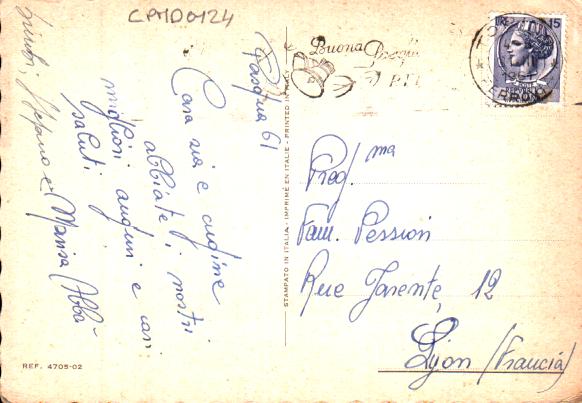 CPMD0124
Pasqua 61
Cara zia e cugine
abbiate i nostri
migliori auguri e cari
saluti,
Stefano e Marisa (Abba-
Buona Pasqua
P.T.
15
1961
FERROVIA
Preg.ma
Fam. Pession
Rue Tarente, 12
Lyon (Francia)
STAMPATO IN ITALIA - IMPRIMÉ EN ITALIE - PRINTED IN ITALY
REF. 4705-02